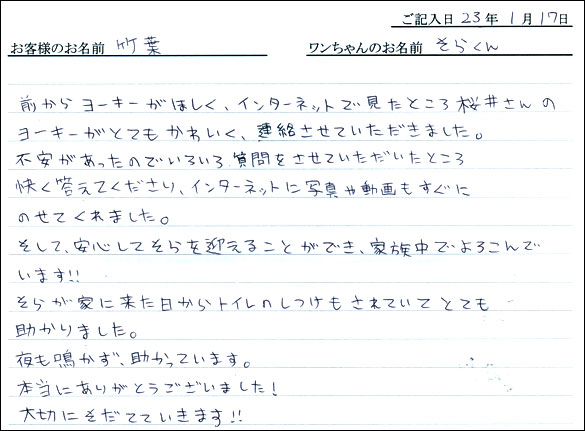 ご記入日 23年 1月 17日
お客様のお名前 竹葉 ワンちゃんのお名前 そらくん
前からヨーキーがほしく、インターネットで見たところ桜井さんの
ヨーキーがとてもかわいく、連絡させていただきました。
不安があったのでいろいろ質問をさせていただいたところ
快く答えてくださり、インターネットに写真や動画もすぐに
のせてくれました。
そして、安心してそらを迎えることができ、家族中でよろこんで
います!!
そらが家に来た日からトイレのしつけもされていてとても
助かりました。
夜も鳴かず、助かっています。
本当にありがとうございました!
大切にそだてていきます!!